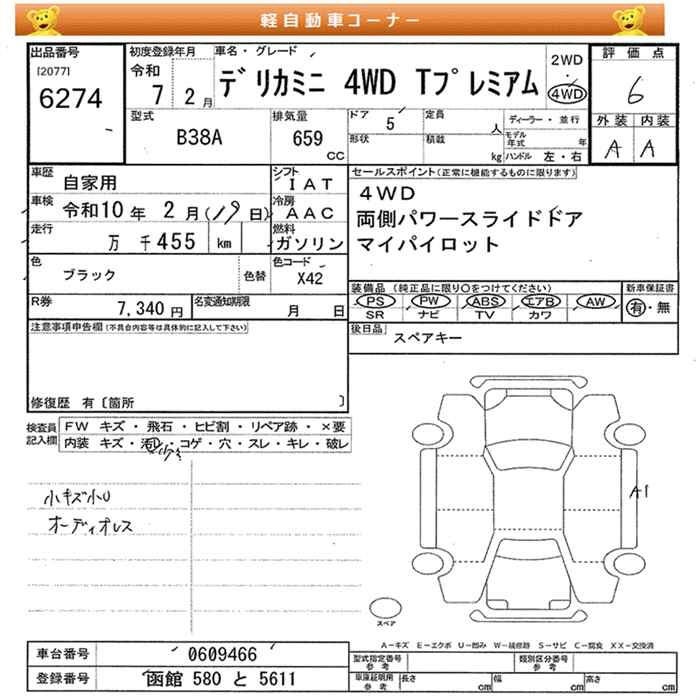 軽自動車コーナー
出品番号 初度登録年月 車名・グレード 2WD 評価点
[2077] 令和 ・
6274 7 2月 デリカミニ 4WD Tプレミアム 4WD 6
型式 排気量 ドア 5 定員 人 ディーラー・並行 外装 内装
B38A 659 cc 形状 積載 kg モデル年式 年 A A
ハンドル 左・右
車歴 自家用 シフト IAT セールスポイント(正常に機能するものに限ります)
車検 令和10年 2月(19日) 冷房 AAC 4WD
走行 万 千455 km 燃料 ガソリン 両側パワースライドドア
マイパイロット
色 ブラック 色替 色コード X42
装備品 (純正品に限り○をつけてください) 新車保証書
R券 7,340円 名変通知期限 月 日 PS PW ABS エアB AW 有・無
SR ナビ TV カワ
注意事項申告欄(不具合内容等は具体的に記入して下さい) 後日品 スペアキー
修復歴 有〔箇所 〕
検査員記入欄 FW キズ・飛石・ヒビ割・リペア跡・×要
内装 キズ・汚レ・コゲ・穴・スレ・キレ・破レ
少々
小キズ小U
オーディオレス
A1
スペア
A-キズ E-エクボ U-凹み W-補修跡 S-サビ C-腐食 XX-交換済
車台番号 0609466 型式指定番号 参考 類別区分番号 参考
登録番号 函館 580 と 5611 車庫証明用 参考 長さ cm 幅 cm 高さ cm